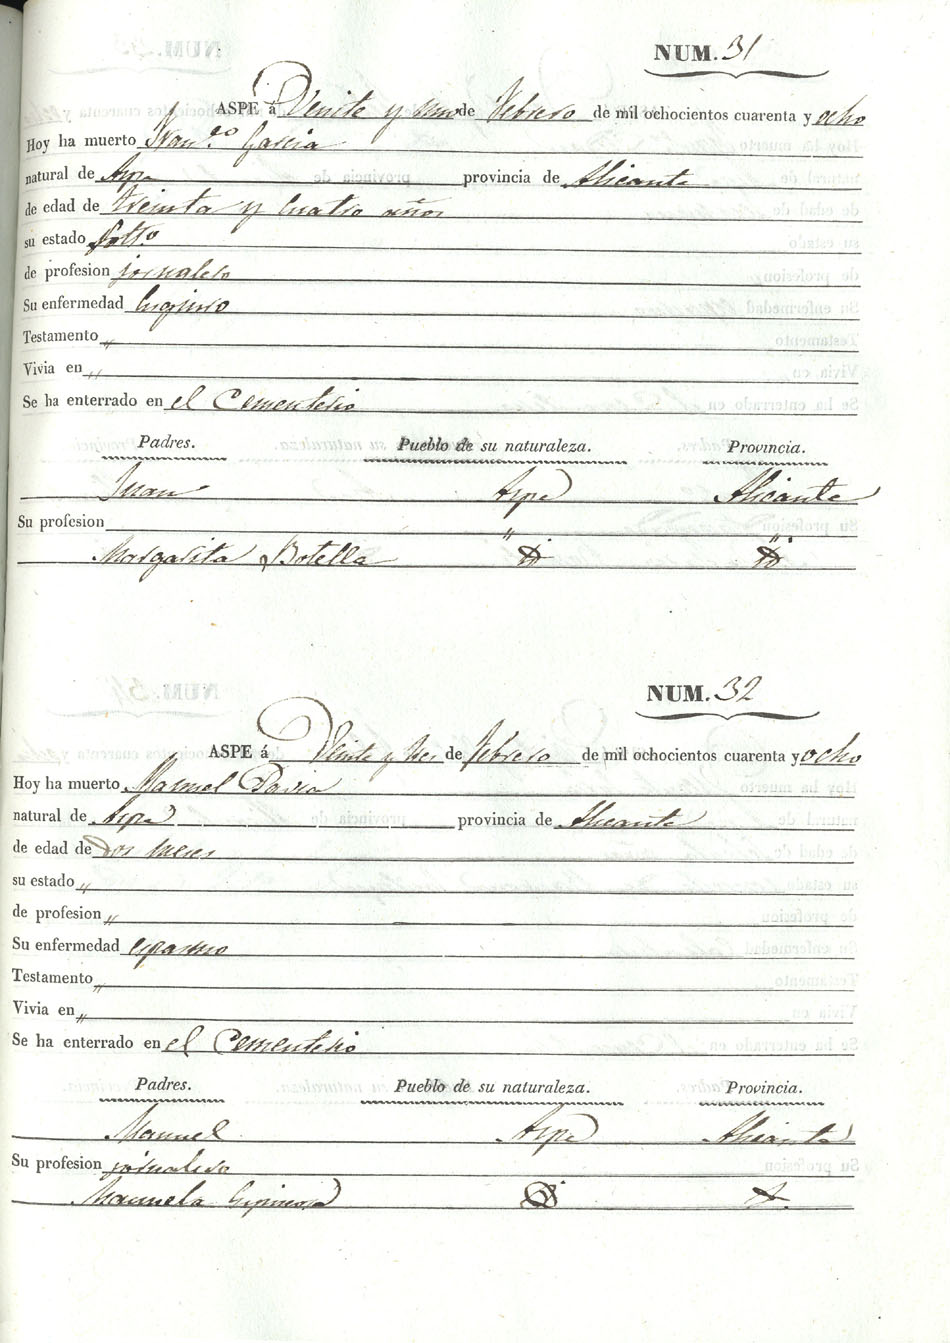 NUM. 31
ASPE á Veinte y uno de Febrero de mil ochocientos cuarenta y ocho
Hoy ha muerto Fran.co Garcia
natural de Aspe provincia de Alicante
de edad de treinta y cuatro años
su estado solt.o
de profesion jornalero
Su enfermedad
Testamento "
Vivia en "
Se ha enterrado en el Cementerio
Padres. Pueblo de su naturaleza. Provincia.
Juan Aspe Alicante
Su profesion " "
Margarita Botella
NUM. 32
ASPE á Veinte y tres de Febrero de mil ochocientos cuarenta y ocho
Hoy ha muerto Manuel Pavia
natural de Aspe provincia de Alicante
de edad de Dos meses
su estado "
de profesion "
Su enfermedad espasmo
Testamento "
Vivia en "
Se ha enterrado en el Cementerio
Padres. Pueblo de su naturaleza. Provincia.
Manuel Aspe Alicante
Su profesion jornalero
Manuela Espinosa